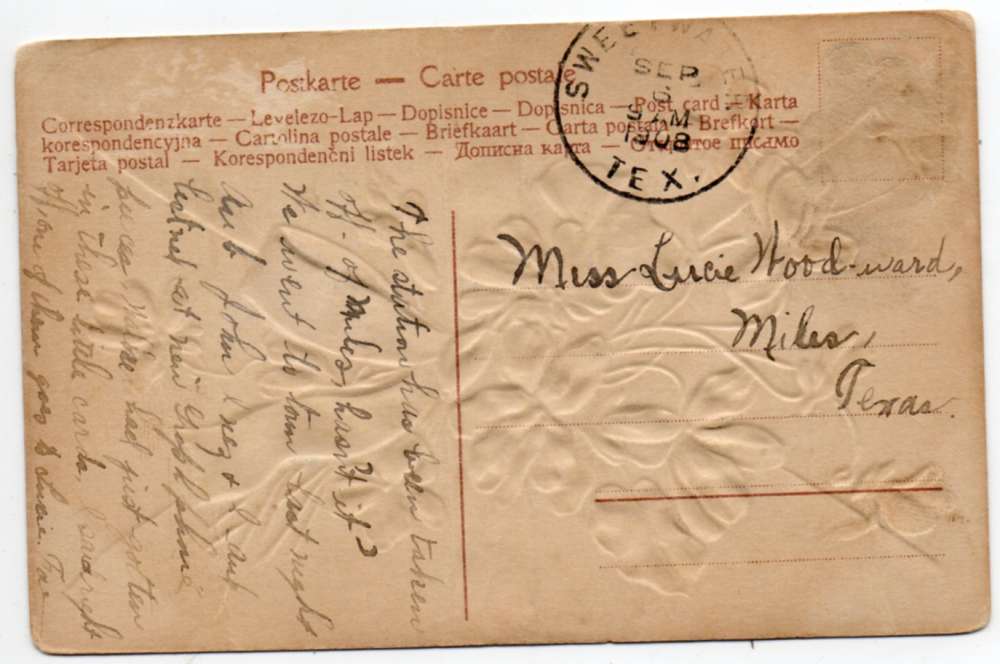 Postkarte — Carte postale
Correspondenzkarte — Levelezo-Lap — Dopisnice — Dopisnica — Post card — Karta
korespondencyjna — Cartolina postale — Briefkaart — Carta postala — Brefkort —
Tarjeta postal — Korespondenčni listek — Дописна карта — Открытое письмо
SWEETWATER
SEP
5
9 AM
1908
TEX.
Miss Lucie Wood-ward,
Miles,
Texas.
The station has been taken
off of Miles, hasn't it?
We went to town last night
and John
at new
had just gotten
in these little cards. I said right
off one of them goes to Lucie.